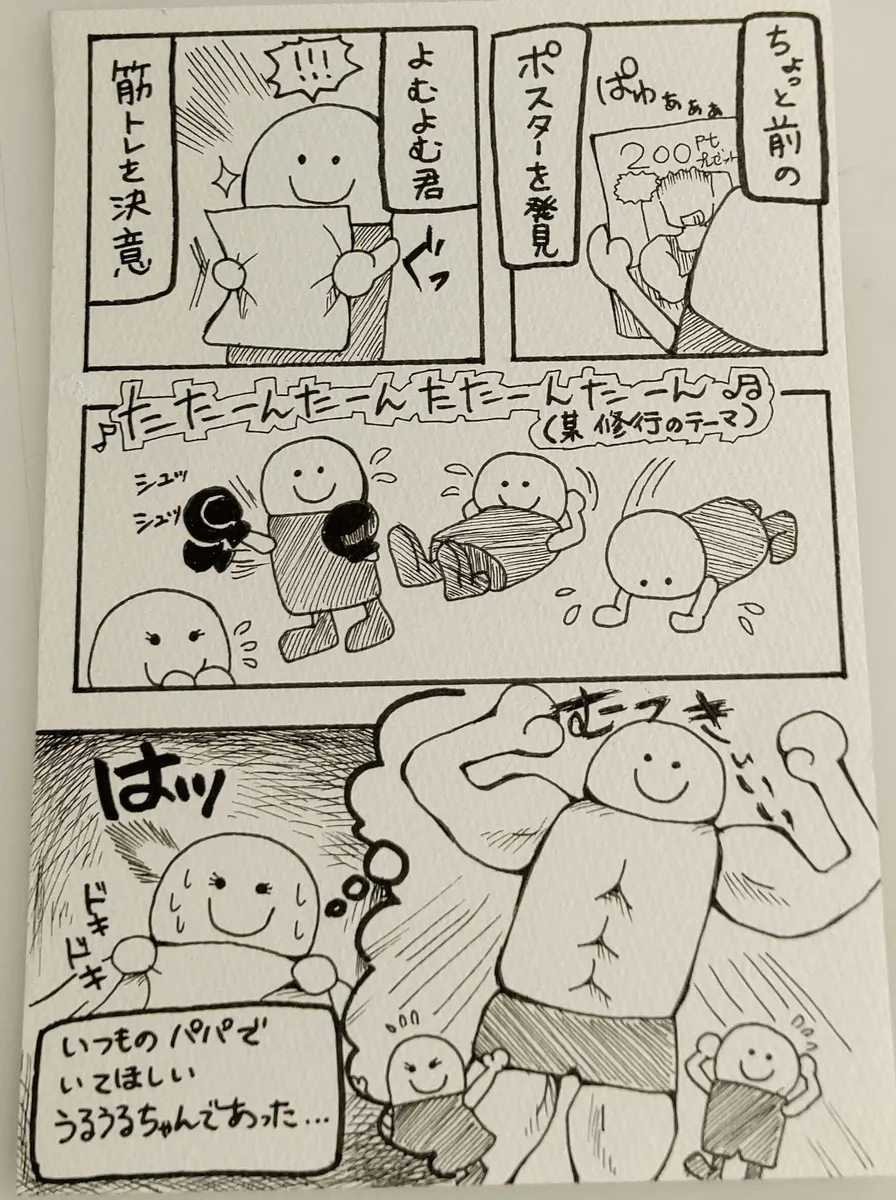 ちょっと前の
ぱわぁぁぁ
200Pt
プレゼント
ポスターを発見
よむよむ君
!!!
ぐっ
筋トレを決意
♪たたーんたーんたたーんたーん♫
(某 修行のテーマ)
シュッ
シュッ
むっきぃぃぃ
はッ
ドキ
ドキ
いつものパパで
いてほしい
うるうるちゃんであった…